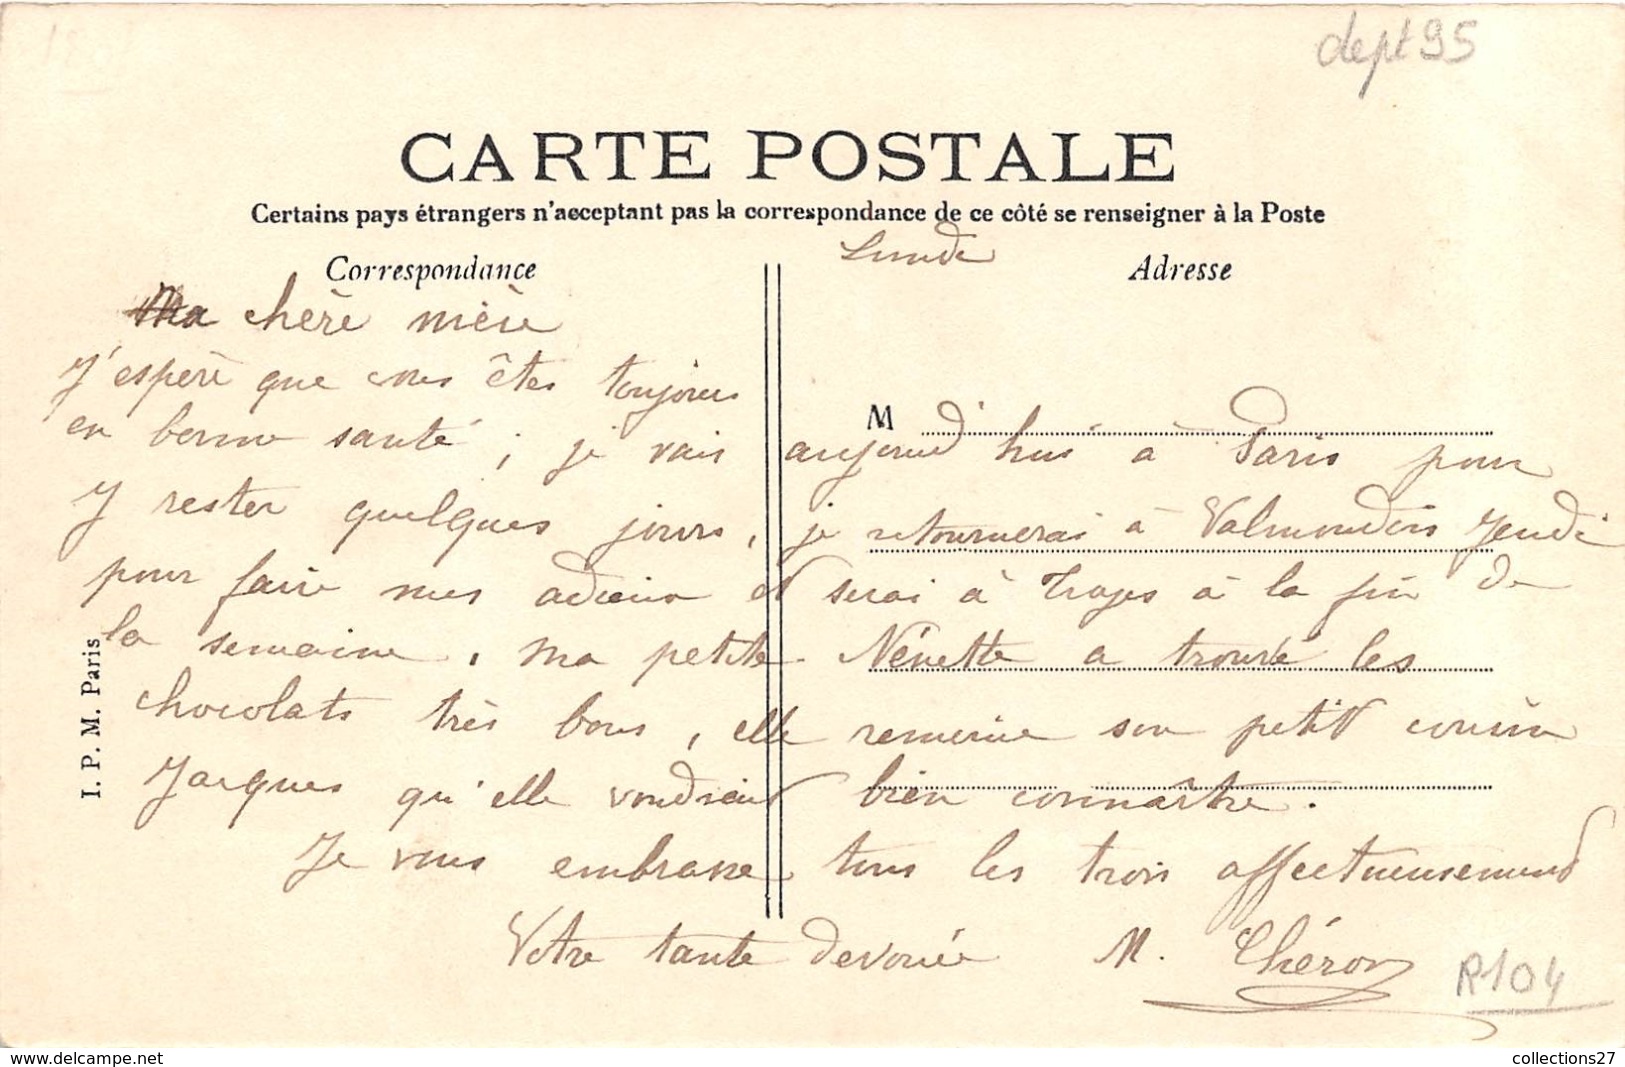 dept 95
CARTE POSTALE
Certains pays étrangers n'acceptant pas la correspondance de ce côté se renseigner à la Poste
Correspondance
Adresse
Lundi
Ma chère nièce
J'espère que vous êtes toujours
en bonne santé ; je vais aujourd'hui à Paris pour
y rester quelques jours, je retournerai à Valmondois Jeudi
pour faire mes adieux et serai à Trages à la fin de
la semaine. Ma petite Nénette a trouvé les
chocolats très bons, elle remercie son petit cousin
Jacques qu'elle voudrait bien connaître.
Je vous embrasse tous les trois affectueusement
Votre tante dévouée M. Théron
M
I. P. M. Paris
R104
collections27